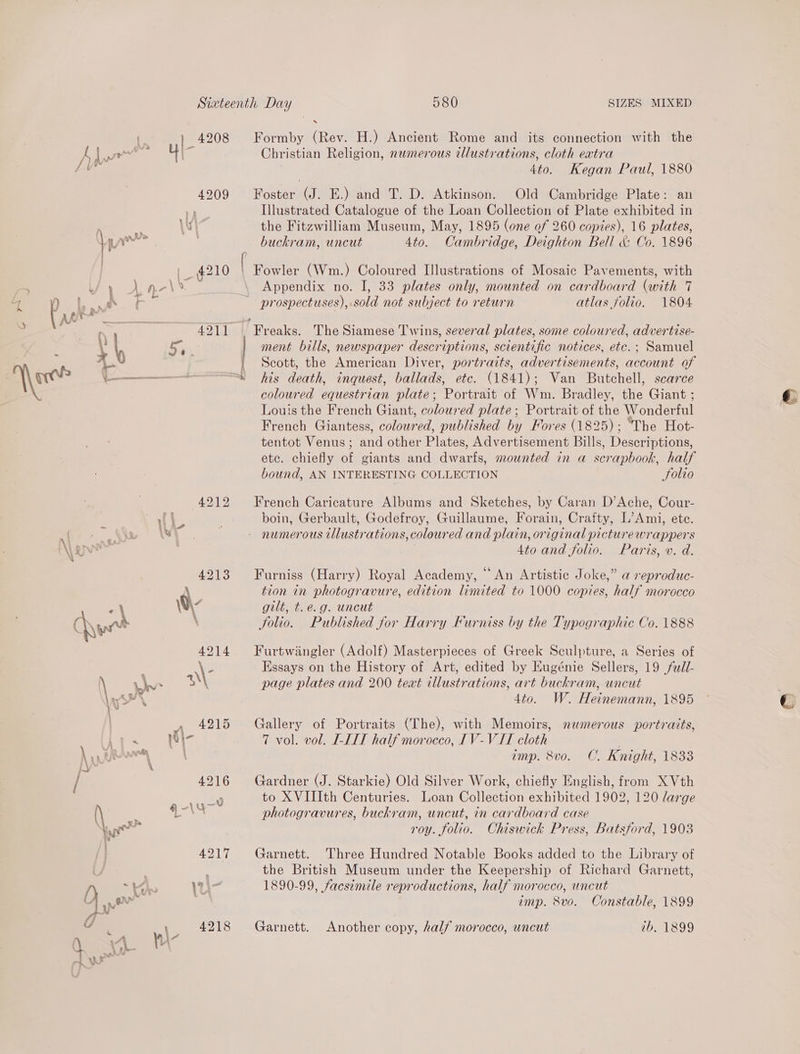 Sixteenth Day 580 SIZES MIXED
4208 Formby (Rev. H.) Ancient Rome and its connection with the
Christian Religion, numerous illustrations, cloth extra
4to. Kegan Paul, 1880
4209 Foster (J. E.) and T. D. Atkinson. Old Cambridge Plate: an
Illustrated Catalogue of the Loan Collection of Plate exhibited in
the Fitzwilliam Museum, May, 1895 (one of 260 copies), 16 plates,
buckram, uncut 4to. Cambridge, Deighton Bell & Co. 1896
4210 Fowler (Wm.) Coloured Illustrations of Mosaic Pavements, with
Appendix no. I, 33 plates only, mounted on cardboard (with 7
prospectuses), sold not subject to return atlas folio. 1804
4211 Freaks. The Siamese Twins, several plates, some coloured, advertise-
ment bills, newspaper descriptions, scientific notices, etc.; Samuel
Scott, the American Diver, portraits, advertisements, account of
his death, inquest, ballads, etc. (1841); Van Butchell, scarce
coloured equestrian plate; Portrait of Wm. Bradley, the Giant;
Louis the French Giant, coloured plate; Portrait of the Wonderful
French Giantess, coloured, published by Fores (1825); The Hot-
tentot Venus; and other Plates, Advertisement Bills, Descriptions,
etc. chiefly of giants and dwarfs, mounted in a scrapbook, half
bound, AN INTERESTING COLLECTION folio
4212 French Caricature Albums and Sketches, by Caran D'Ache, Cour-
boin, Gerbault, Godefroy, Guillaume, Forain, Crafty, L'Ami, etc.
numerous illustrations, coloured and plain, original picture wrappers
4to and folio. Paris, v. d.
4213 Furniss (Harry) Royal Academy, "An Artistic Joke," a reproduc-
tion in photogravure, edition limited to 1000 copies, half morocco
gilt, t. e. g. uncut
folio. Published for Harry Furniss by the Typographic Co. 1888
4214 Furtwängler (Adolf) Masterpieces of Greek Sculpture, a Series of
Essays on the History of Art, edited by Eugénie Sellers, 19 full-
page plates and 200 text illustrations, art buckram, uncut
4to. W. Heinemann, 1895
4215 Gallery of Portraits (The), with Memoirs, numerous portraits,
7 vol. vol. I-III half morocco, IV-VII cloth
imp. 8vo. C. Knight, 1833
4216 Gardner (J. Starkie) Old Silver Work, chiefly English, from XVth
to XVIIIth Centuries. Loan Collection exhibited 1902, 120 large
photogravures, buckram, uncut, in cardboard case
roy. folio. Chiswick Press, Batsford, 1903
4217 Garnett. Three Hundred Notable Books added to the Library of
the British Museum under the Keepership of Richard Garnett,
1890-99, facsimile reproductions, half morocco, uncut
imp. 8vo. Constable, 1899
4218 Garnett. Another copy, half morocco, uncut ib. 1899